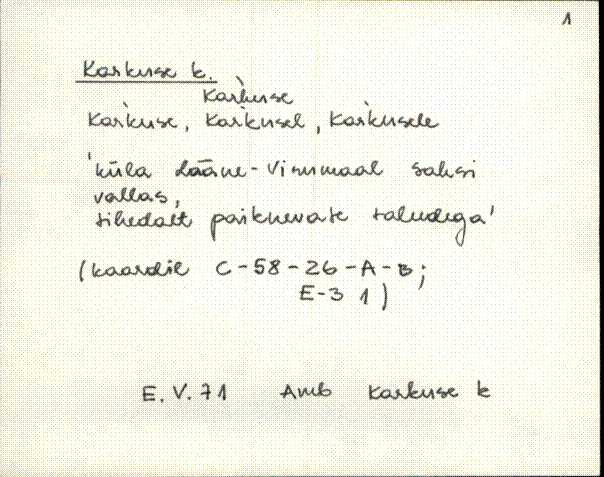 1
Karkuse k.
Kar̀kuse
Kar̀kuse, Kar̀kusel, Kar̀kusele
'küla Lääne-Virumaal saksi
vallas,
tihedalt paiknevate taludega'
(kaardil C-58-26-A-B;
E-3 1)
E.V. 71 Amb Karkuse k